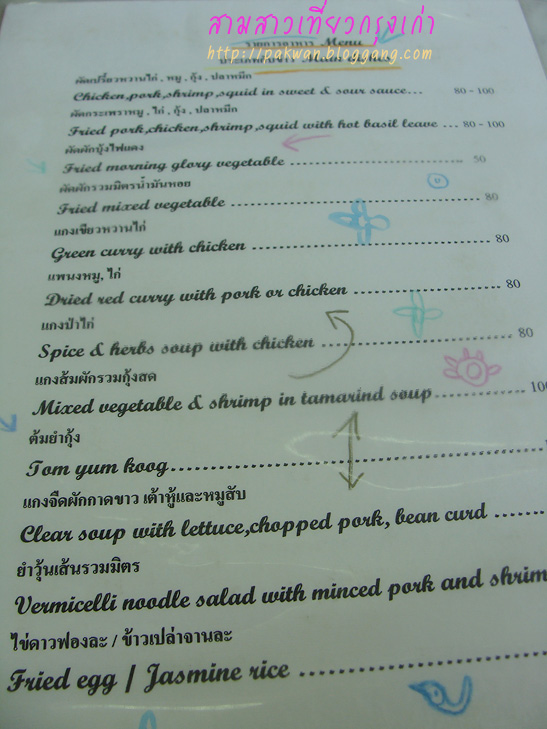 สามสาวเที่ยวกรุงเก่า
รายการอาหาร Menu
http://pakwan.bloggang.com
ผัดเปรี้ยวหวานไก่ , หมู , กุ้ง , ปลาหมึก
Chicken,pork,shrimp,squid in sweet & sour sauce... 80 - 100
ผัดกระเพราหมู , ไก่ , กุ้ง , ปลาหมึก
Fried pork,chicken,shrimp,squid with hot basil leave ... 80 - 100
ผัดผักบุ้งไฟแดง
Fried morning glory vegetable ........................................ 50
ผัดผักรวมมิตรน้ำมันหอย
Fried mixed vegetable ............................................... 80
แกงเขียวหวานไก่
Green curry with chicken ............................................ 80
แพนงหมู, ไก่
Dried red curry with pork or chicken ........................... 80
แกงป่าไก่
Spice & herbs soup with chicken .................................. 80
แกงส้มผักรวมกุ้งสด
Mixed vegetable & shrimp in tamarind soup................ 100
ต้มยำกุ้ง
Tom yum koog............................................................
แกงจืดผักกาดขาว เต้าหู้และหมูสับ
Clear soup with lettuce,chopped pork, bean curd .......
ยำวุ้นเส้นรวมมิตร
Vermicelli noodle salad with minced pork and shrim
ไข่ดาวฟองละ / ข้าวเปล่าจานละ
Fried egg / Jasmine rice ...............................